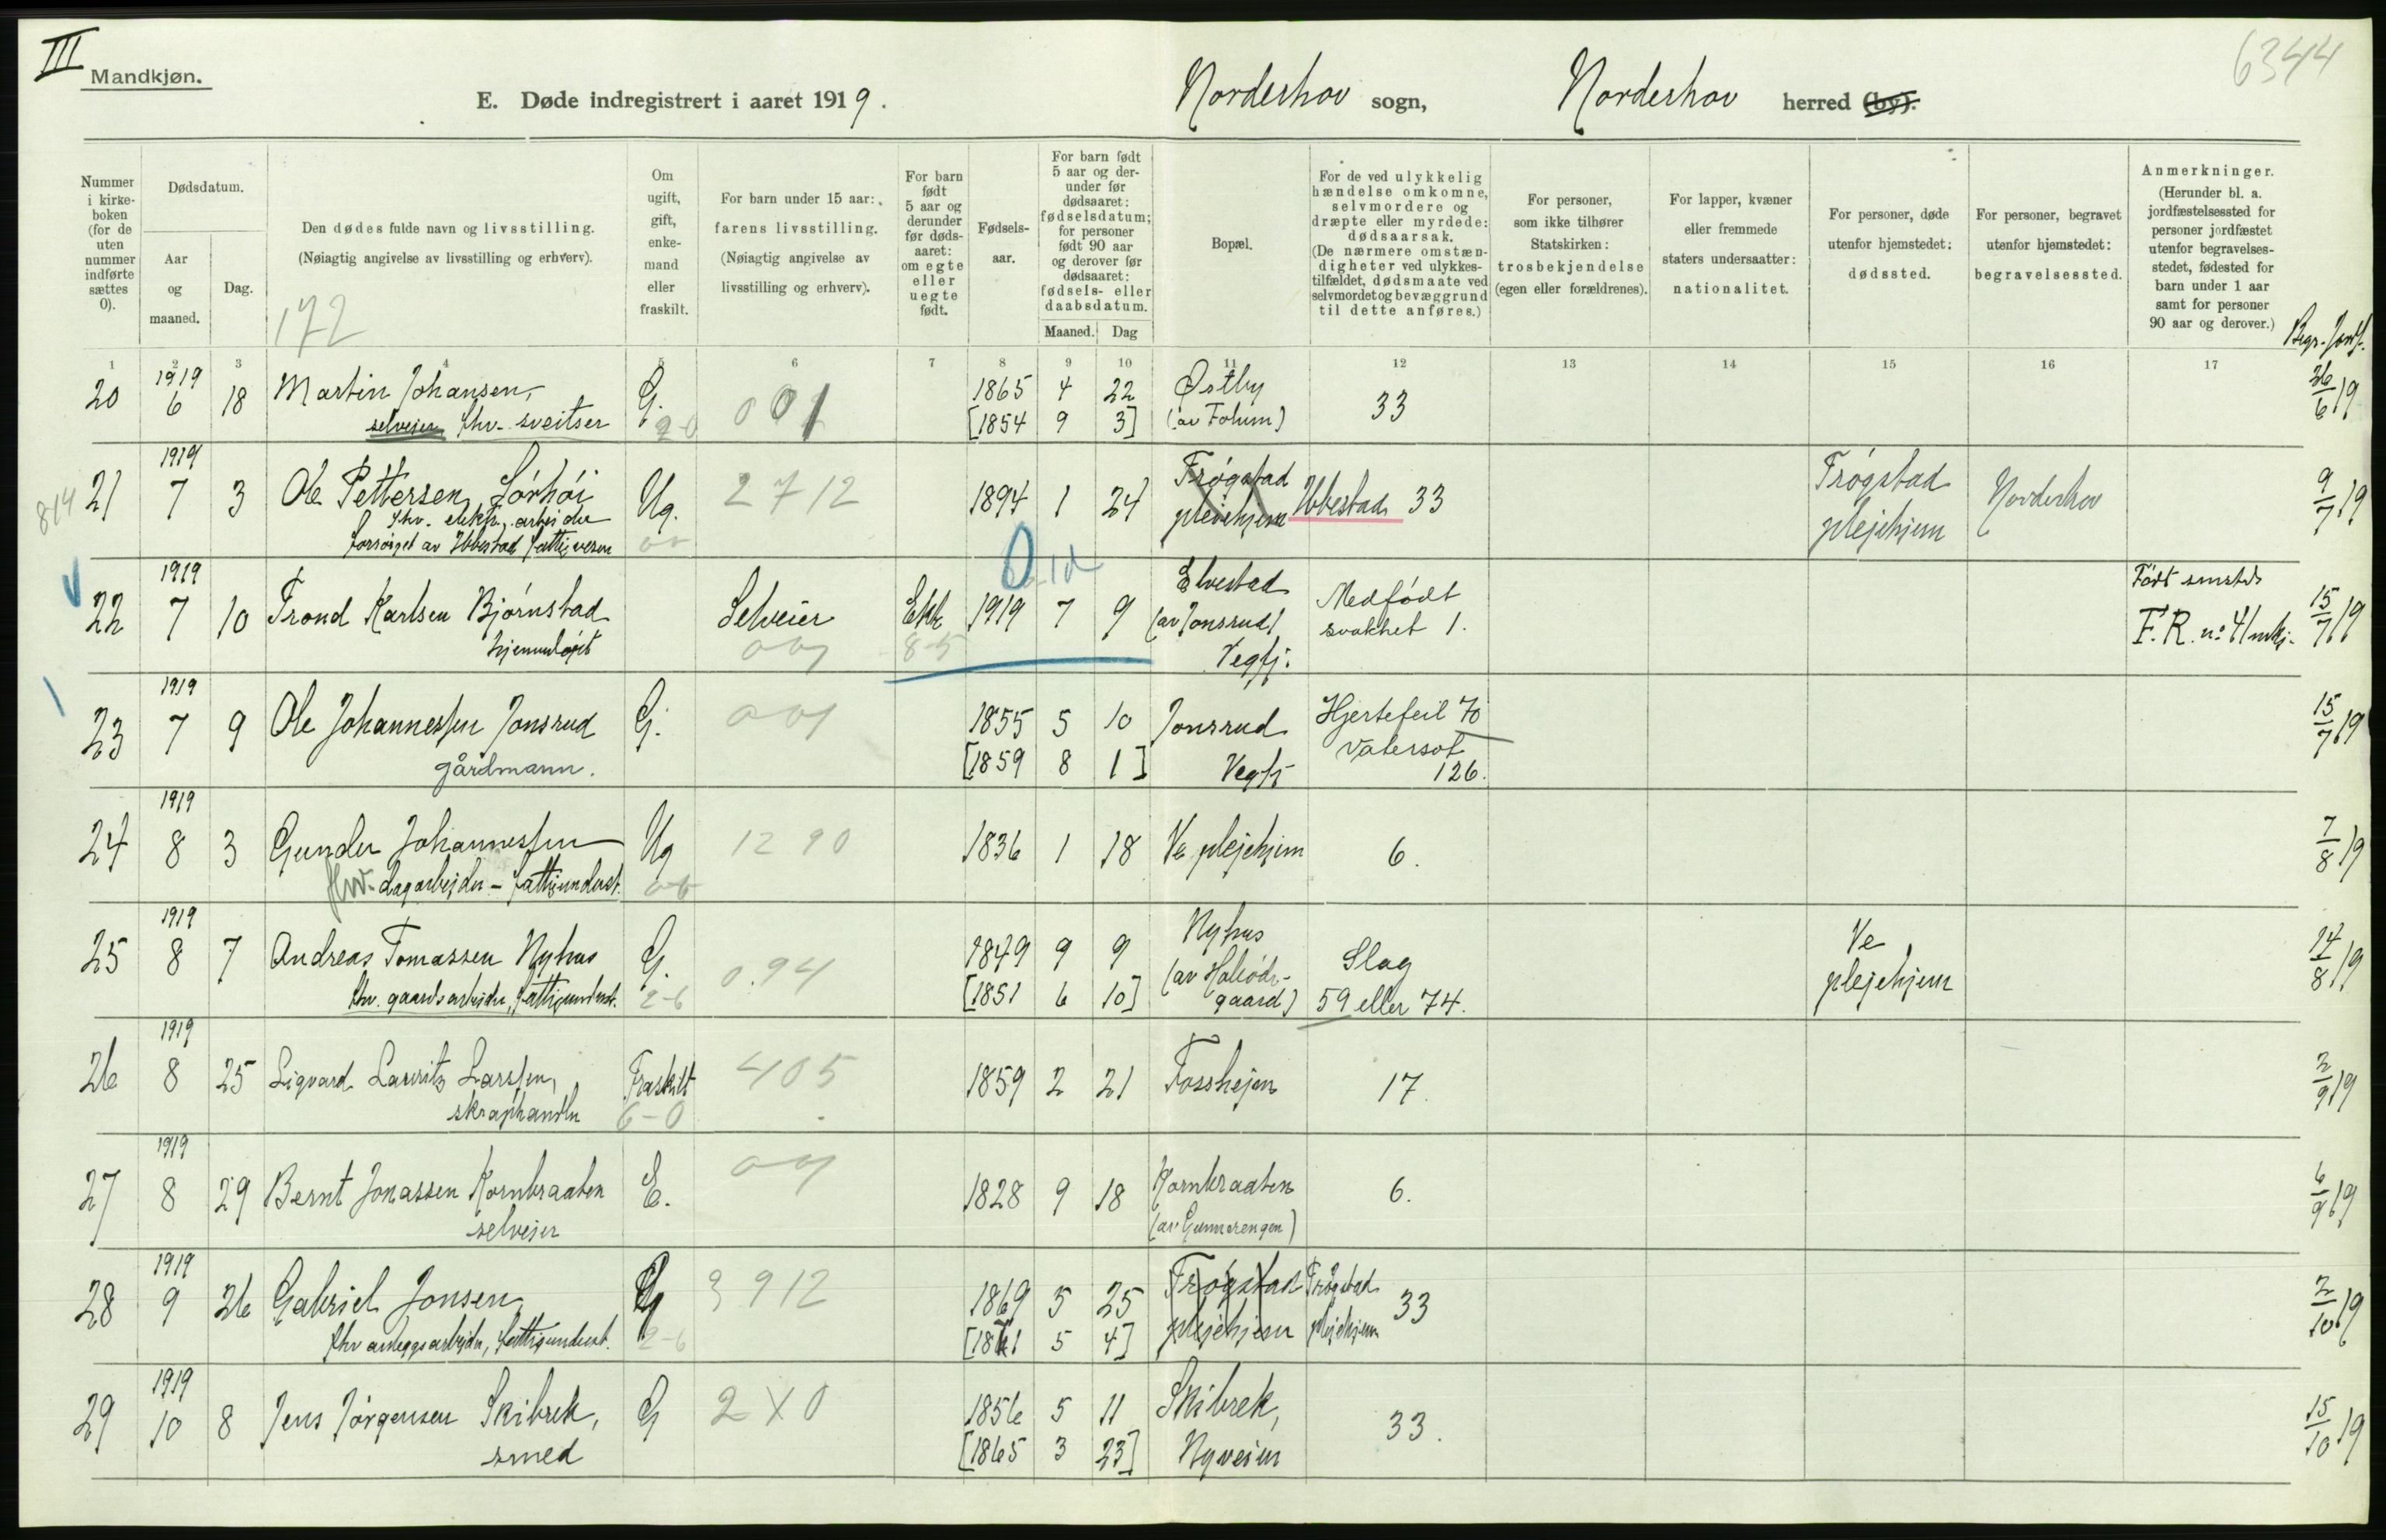 III
Mandkjøn.
6344
E. Døde indregistrert i aaret 1919.
Norderhov sogn, Norderhov herred (by).
Nummer i kirkeboken (for de uten nummer indførte sættes 0).
Dødsdatum.
Aar og maaned.
Dag.
Den dødes fulde navn og livsstilling.
(Nøiagtig angivelse av livsstilling og erhverv).
172
Om ugift, gift, enkemand eller fraskilt.
For barn under 15 aar:
farens livsstilling.
(Nøiagtig angivelse av livsstilling og erhverv).
For barn født 5 aar og derunder før dødsaaret: om egte eller uegte født.
Fødselsaar.
For barn født 5 aar og derunder før dødsaaret: fødselsdatum; for personer født 90 aar og derover før dødsaaret: fødsels- eller daabsdatum.
Maaned. Dag
Bopæl.
For de ved ulykkelig hændelse omkomne, selvmordere og dræpte eller myrdede: dødsaarsak.
(De nærmere omstændigheter ved ulykkestilfældet, dødsmaate ved selvmordet og bevæggrund til dette anføres.)
For personer, som ikke tilhører Statskirken: trosbekjendelse (egen eller forældrenes).
For lapper, kvæner eller fremmede staters undersaatter: nationalitet.
For personer, døde utenfor hjemstedet: dødssted.
For personer, begravet utenfor hjemstedet: begravelsessted.
Anmerkninger.
(Herunder bl. a. jordfæstelsessted for personer jordfæstet utenfor begravelsesstedet, fødested for barn under 1 aar samt for personer 90 aar og derover.)
Begr. Jordf.
1 2 3 4 5 6 7 8 9 10 11 12 13 14 15 16 17
20 1919 6 18 Martin Johansen, G. 001 1865 4 22 Østby 33 26/6 19
selveier fhv. sveitser 2-0 [1854 9 3] (av Tolum)
814 21 1919 7 3 Ole Pettersen Sørhøi Ug. 2712 1894 1 24 Frøgstad plejehjem Ibbestad 33 Frøgstad plejehjem Norderhov 9/7 19
fhv. elektr. arbeider
forsørget av Ibbestad fattigvesen
22 1919 7 10 Trond Karlsen Bjørnstad Selveier Ekte 1919 7 9 Elvestad (av Jonsrud) Vegfj. Medfødt svakhet 1. Født smsteds F.R. nº 41 mkj. 15/7 19
hjemmedøpt 8-5
23 1919 7 9 Ole Johannessen Jonsrud G. 1855 5 10 Jonsrud Hjertefeil 70 15/7 19
gårdmann. [1859 8 1] Vegfj Vatersot 126.
24 1919 8 3 Gunder Johannessen Ug 1290 1836 1 18 Ve plejehjem 6. 7/8 19
fhv. dagarbejder - fattigunderst.
25 1919 8 7 Andreas Tomassen Nyhus G. 0.94 1849 9 9 Nyhus Slag Ve plejehjem 14/8 19
fhv. gaardsarbeider, fattigunderst. 2-6 [1851 6 10] gaard) 59 eller 74.
26 1919 8 25 Sigvard Lauritz Larssen, Fraskilt 405 1859 2 21 Fosshejm 17. 2/9 19
skraphandler 6-0
27 1919 8 29 Bernt Jonassen Kornbraaten E. 1828 9 18 Kornbraaten 6. 6/9 19
selveier (av Gunnerengen)
28 1919 9 26 Gabriel Jonsen G 3912 1869 5 25 Frøgstad plejehjem Frøgstad plejehjem 33 2/10 19
fhv anleggsarbejder, fattigunderst. 2-6 [1861 5 4]
29 1919 10 8 Jens Jørgensen Skibrek, G 2X0 1856 5 11 Skibrek, 33. 15/10 19
smed [1865 3 23] Nyveien